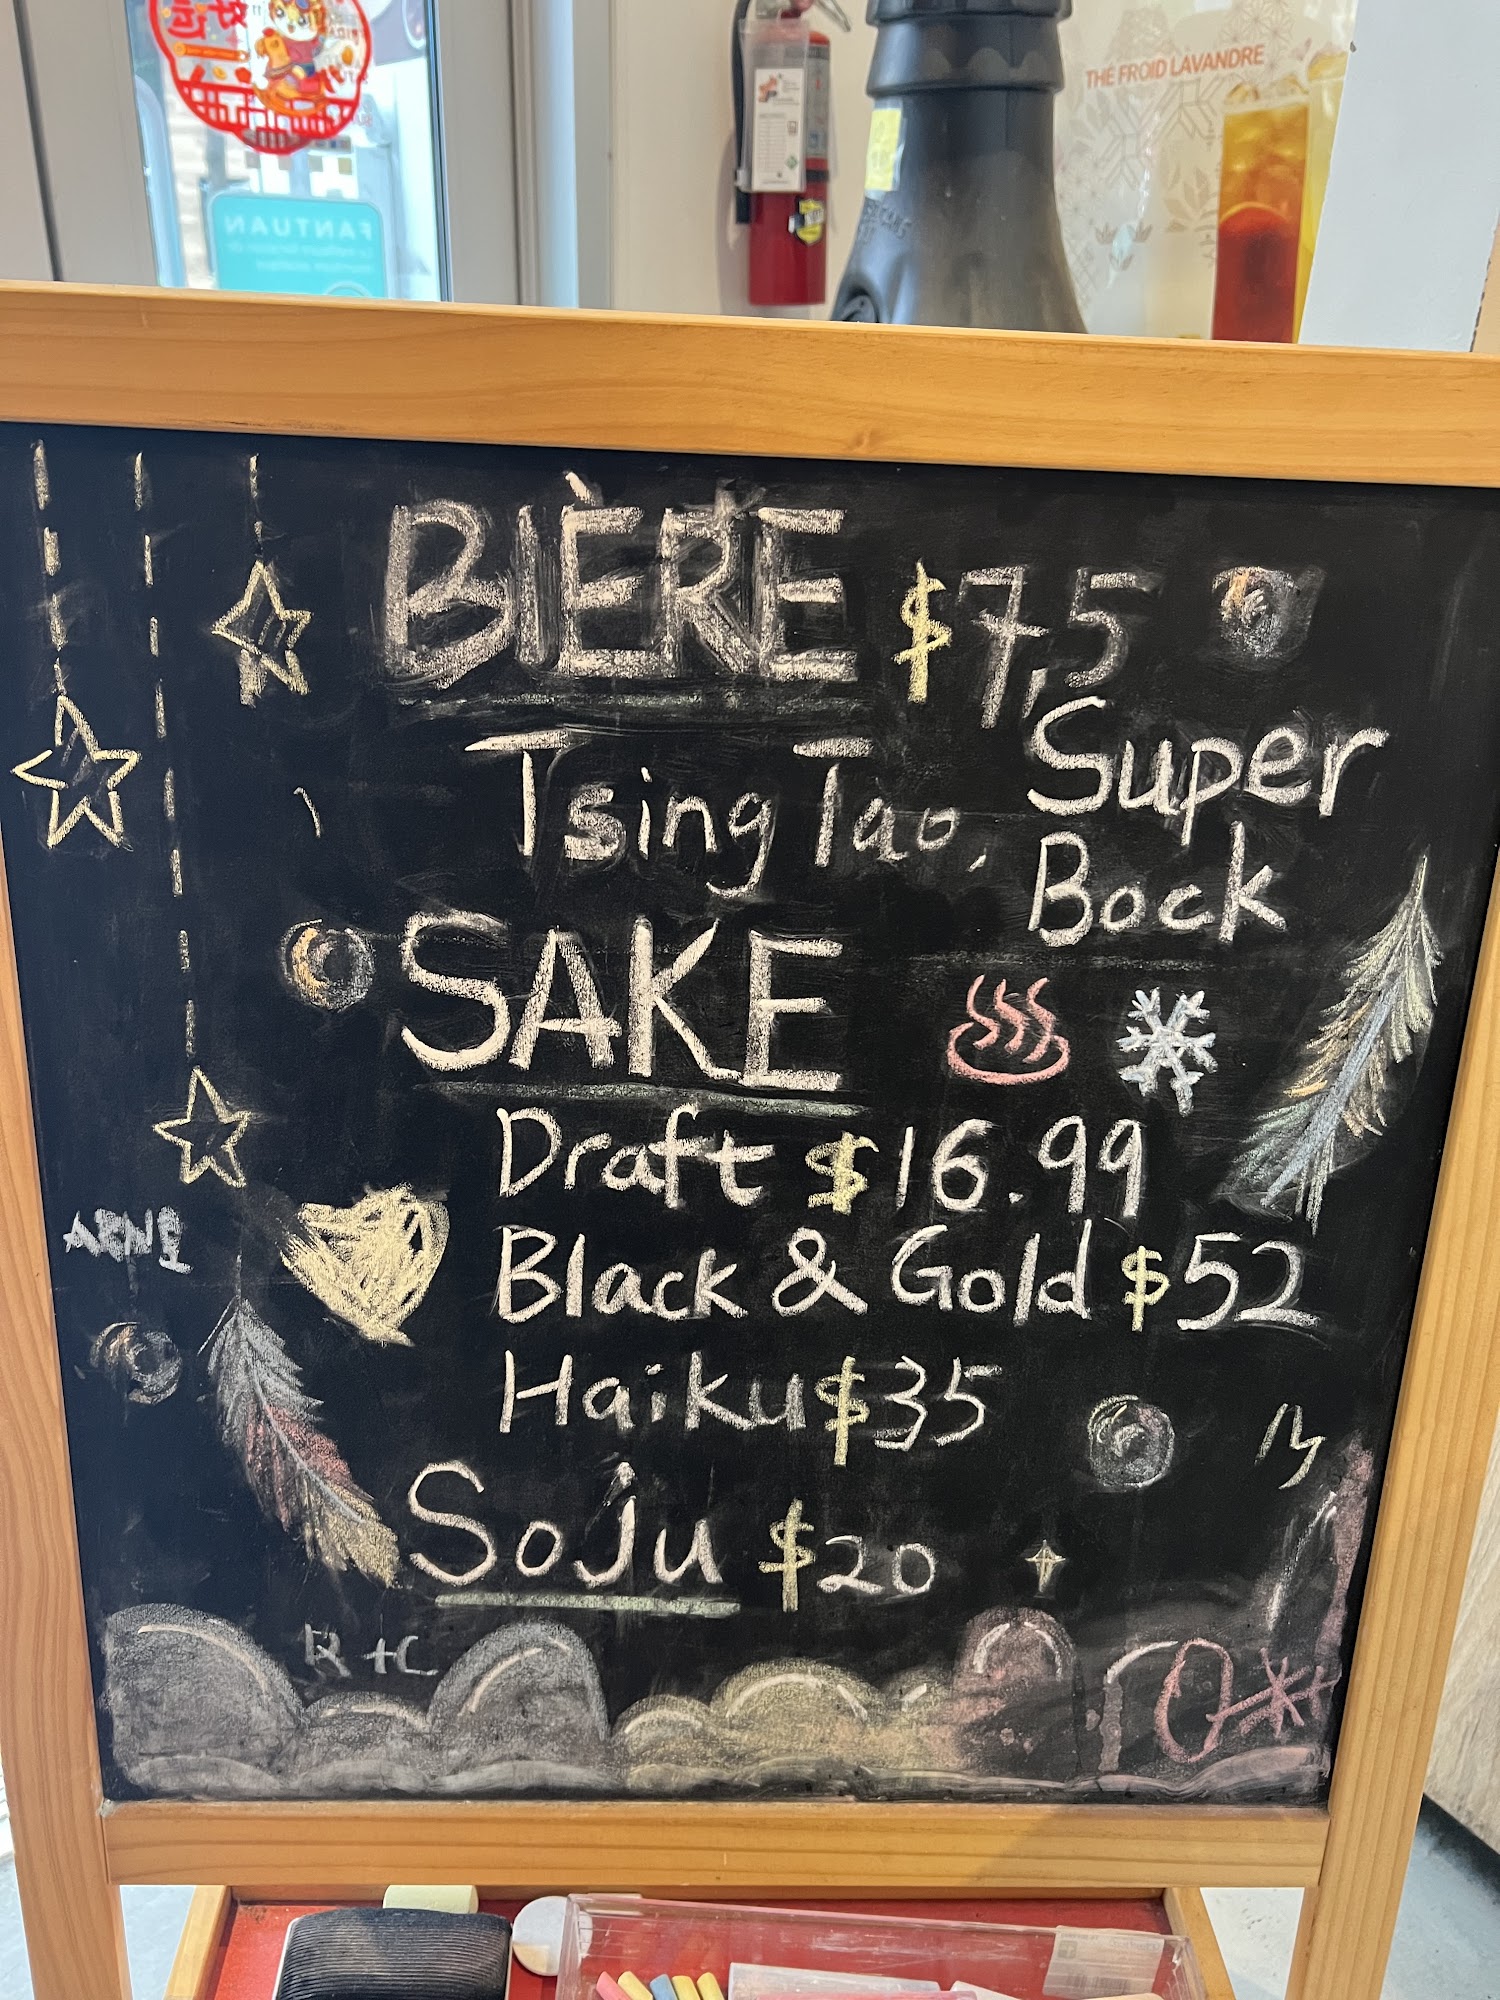 好运
THÉ FROID LAVANDRE
FANTUAN
BIÈRE $7,5
TsingTao, Super
Bock
SAKE
Draft $16.99
Black & Gold $52
Haiku $35
Soju $20
R+C